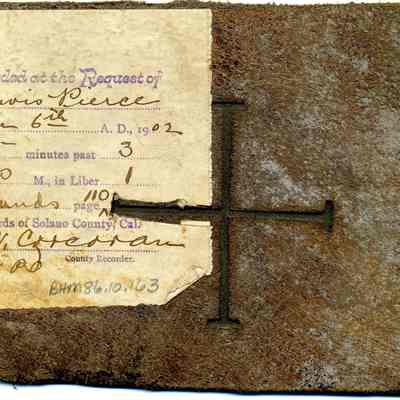 ded at the Request of
Pierce
6th A. D., 1902
minutes past 3
M., in Liber 1
ands page 110
rds of Solano County, Cal.
Corcoran
County Recorder.
BHM86.10.163